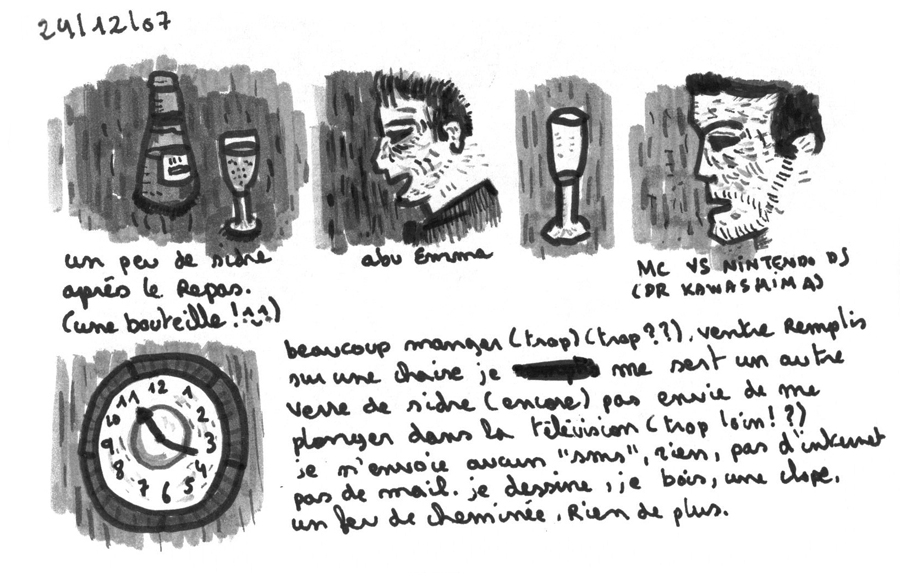 24/12/07
un peu de sidre
après le Repas.
(une bouteille !^^)
abu Emma
MC VS NINTENDO DS
(DR KAWASHIMA)
12
1
2
3
4
5
6
7
8
9
10
11
beaucoup manger (trop) (trop??), ventre Remplis
sur une chaise je me sert un autre
verre de sidre (encore) pas envie de me
plonger dans la télévision (trop loin!?)
je n'envoie aucun "sms", rien, pas d'internet
pas de mail. je dessine, je bois, une clope,
un feu de cheminée, Rien de plus.